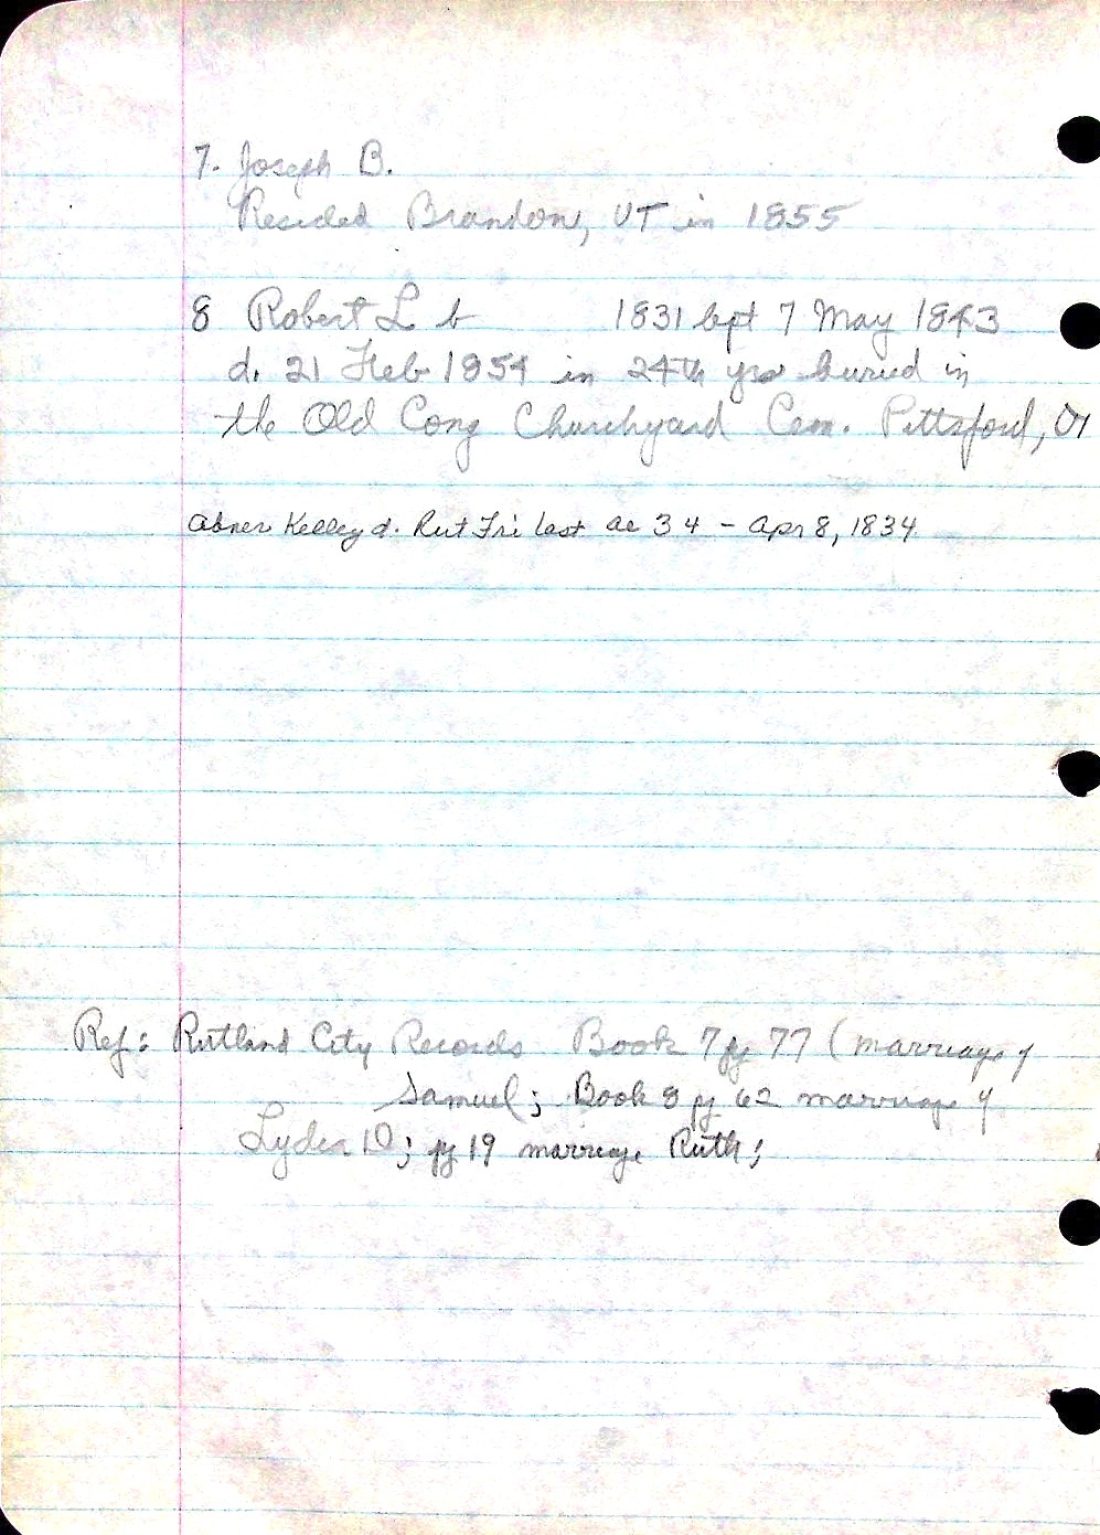 7. Joseph B.
Resided Brandon, VT in 1855
8 Robert L b 1831 bpt 7 May 1843
d. 21 Feb 1854 in 24th yrs buried in
the Old Cong Churchyard Cem. Pittsford, Vt
Abner Kelley d. Rut Fri last ae 34 - Apr 8, 1834
Ref: Rutland City Records Book 7 pg 77 (marriage of
Samuel; Book 8 pg 62 marriage of
Lydia D; pg 19 marriage Ruth;